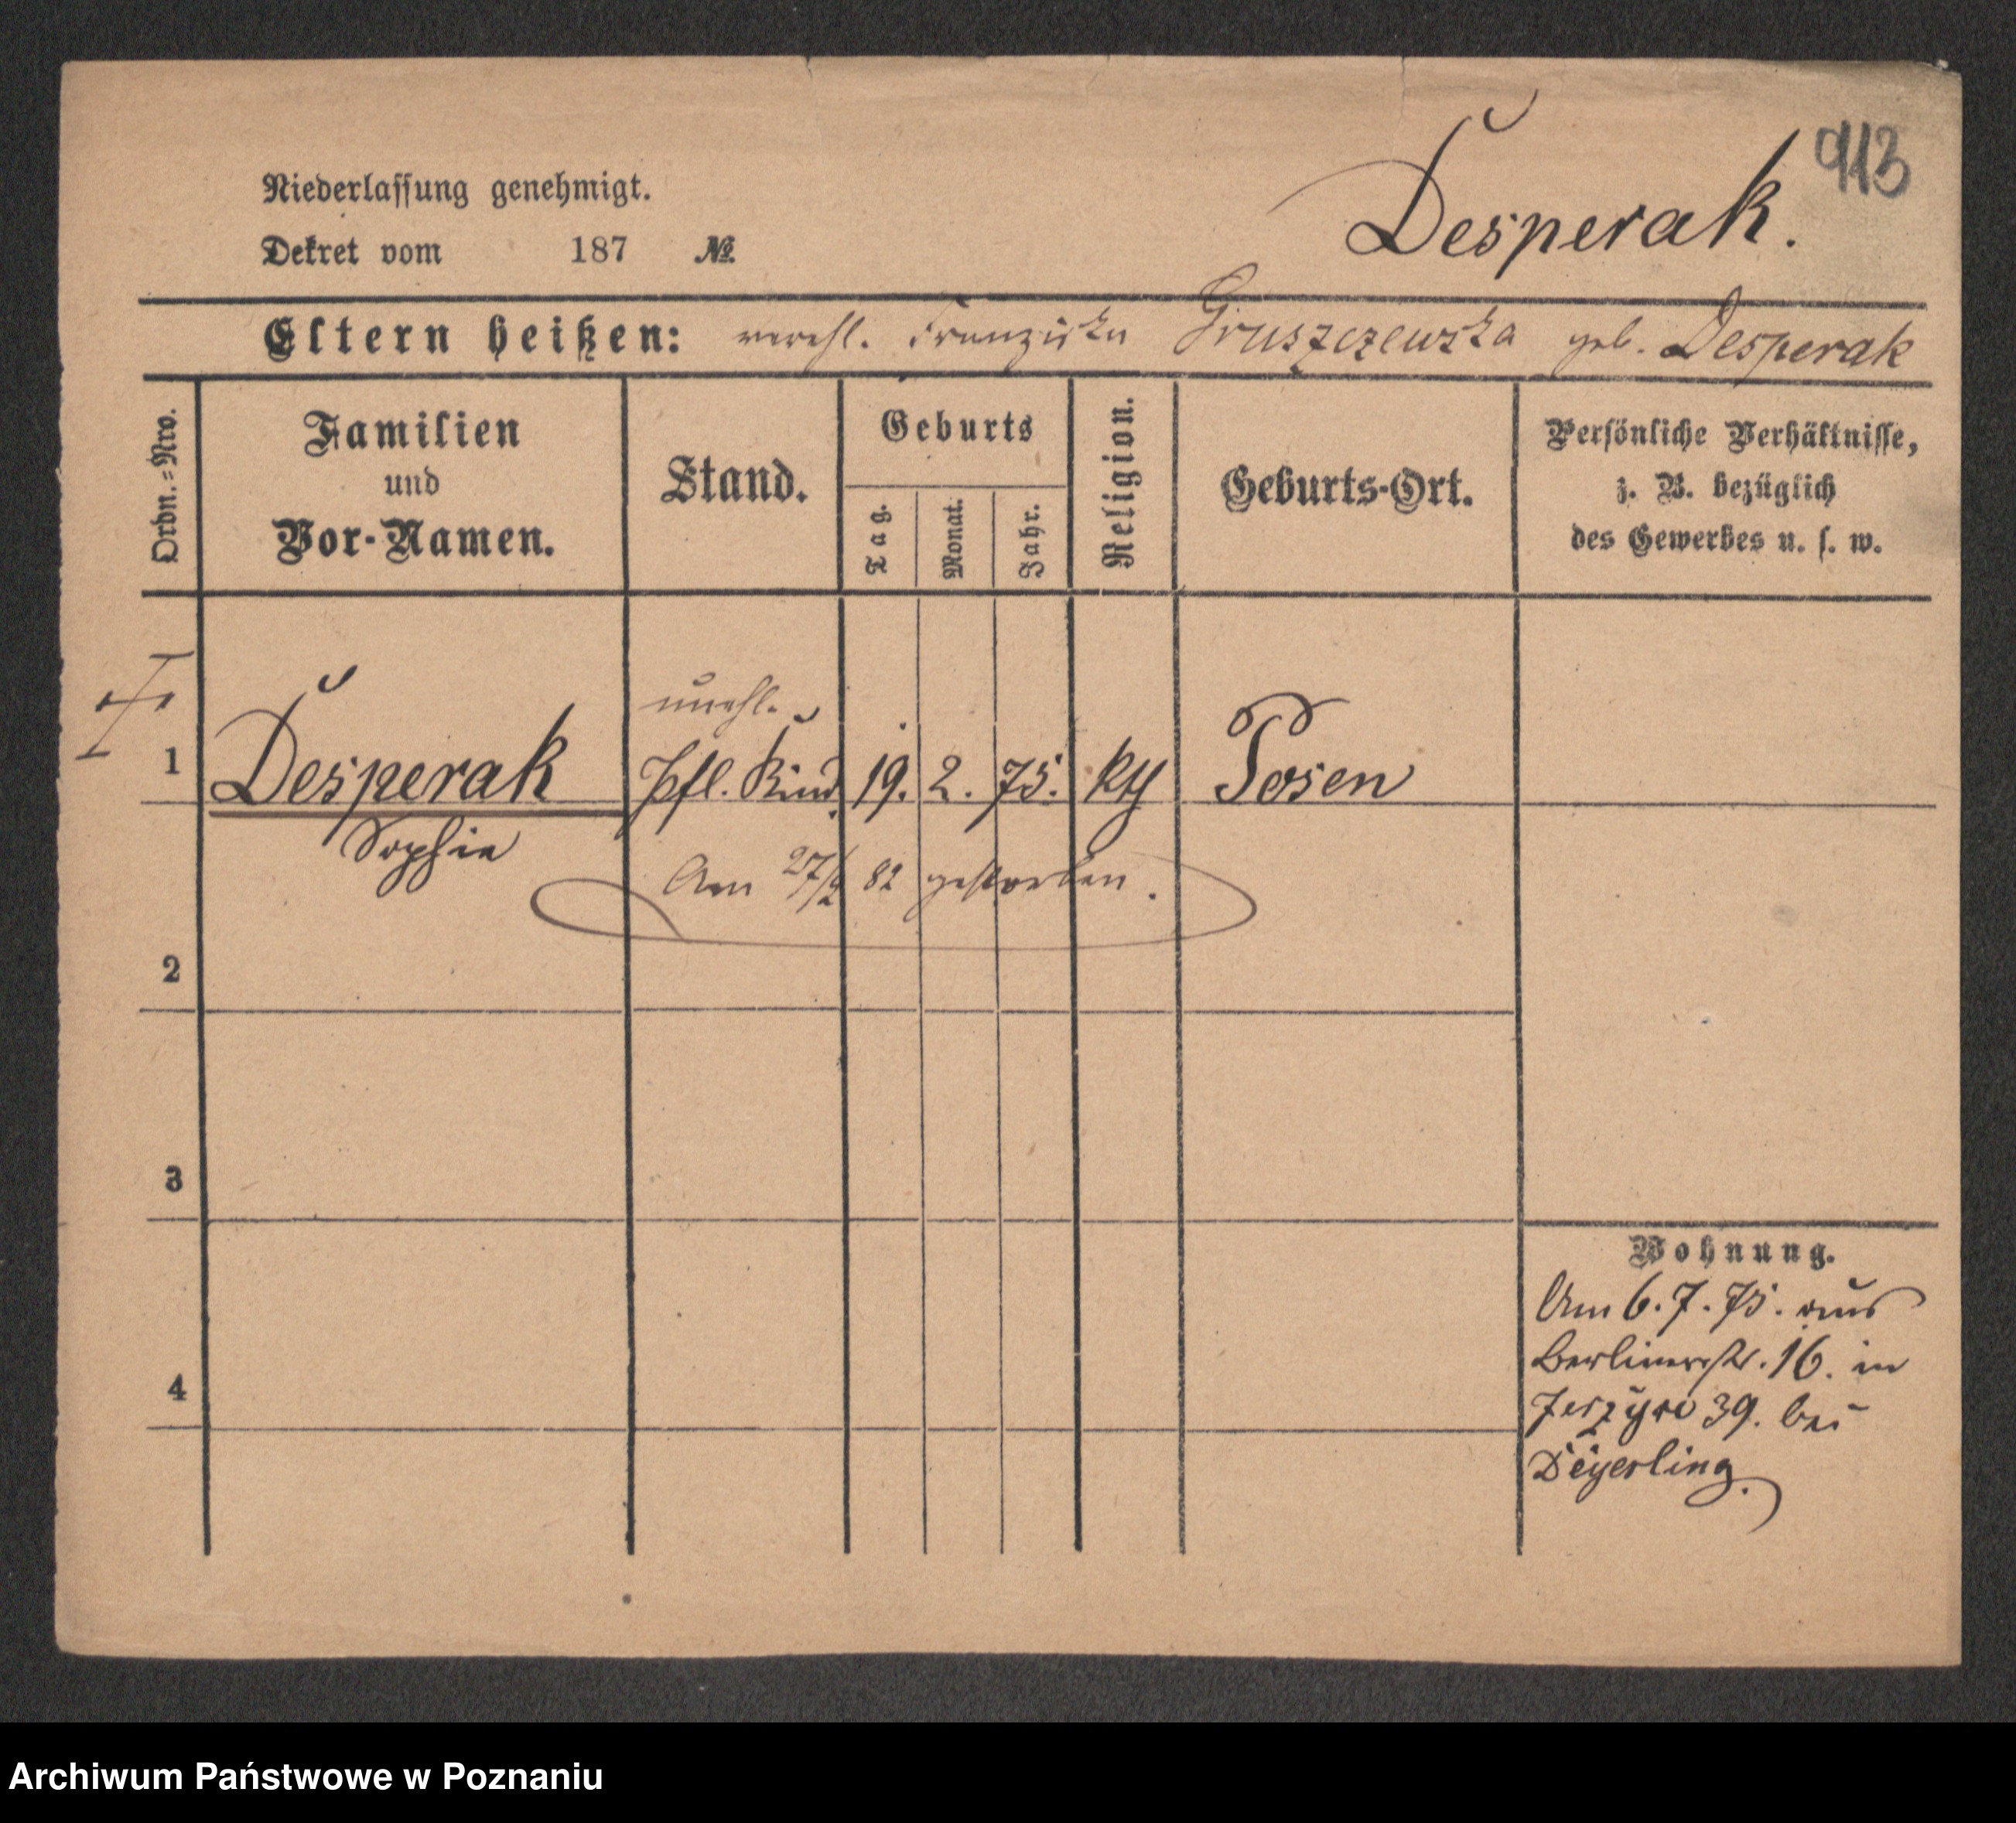 Desperak.
913
Niederlassung genehmigt.
Dekret vom 187 №
Eltern heißen: verehl. Franziska Gruszczewska geb. Desperak
Ordn.=Nro.
Familien
und
Vor-Namen.
Stand.
Geburts
Tag.
Monat.
Jahr.
Religion.
Geburts-Ort.
Persönliche Verhältnisse,
z. B. bezüglich
des Gewerbes u. s. w.
unehl.
1 Desperak Pfl. Kind 19. 2. 75. kth Posen
Sophie
Am 27/2 82 gestorben.
2
3
4
Wohnung.
Am 6. 7. 75. aus
Berlinerstr. 16. in
39. bei
Deyerling.
Archiwum Państwowe w Poznaniu